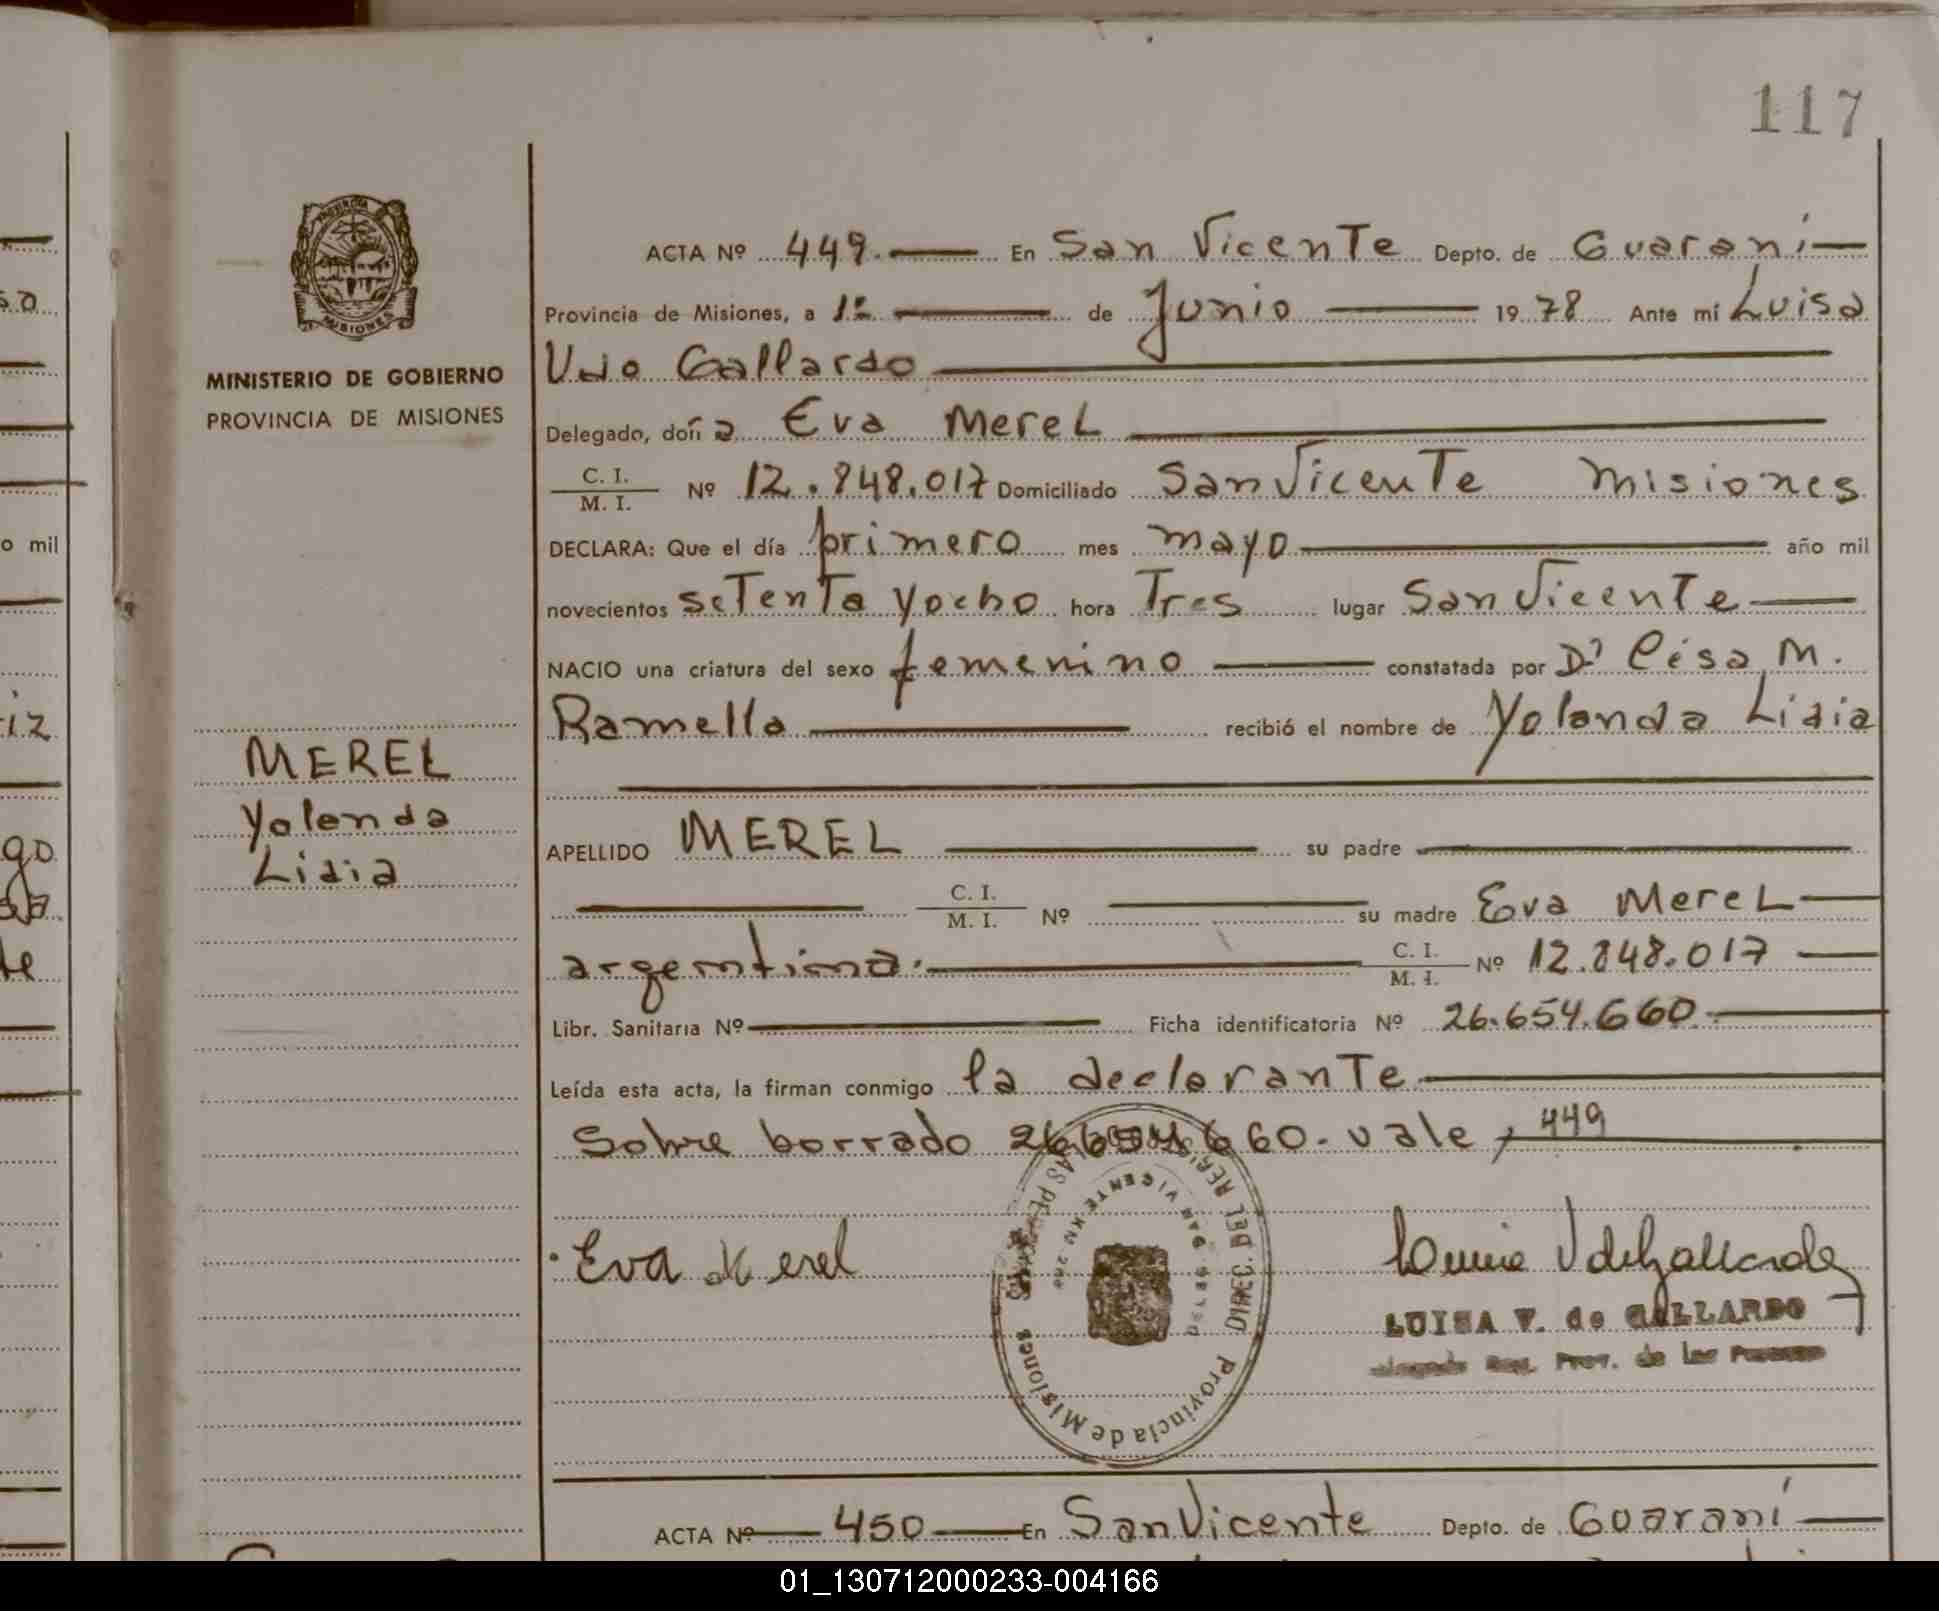 117
PROVINCIA
MISIONES
MINISTERIO DE GOBIERNO
PROVINCIA DE MISIONES
ACTA Nº 449. En San Vicente Depto. de Guaraní
Provincia de Misiones, a 1º de Junio 1978 Ante mi Luisa
Vdo Gallardo
Delegado, doña Eva Merel
C. I.
M. I. Nº 12.848.017 Domiciliado San Vicente Misiones
DECLARA: Que el día primero mes mayo año mil
novecientos setenta y ocho hora Tres lugar San Vicente
NACIO una criatura del sexo femenino constatada por Dr César M.
Ramella recibió el nombre de Yolanda Lidia
MEREL
Yolanda
Lidia
APELLIDO MEREL su padre
C. I.
M. I. Nº su madre Eva Merel
argentina. C. I.
M. I. Nº 12.848.017
Libr. Sanitaria Nº Ficha identificatoria Nº 26.654.660
Leída esta acta, la firman conmigo la declarante
Sobre borrado 26654660. vale, 449
Eva Merel
DIREC. DEL REGIS
SAN VICENTE KM
Provincia de Misiones
LUISA V. de GALLARDO
Prov. de las Personas
ACTA Nº 450 En San Vicente Depto. de Guaraní
so
o mil
iz
go
te
01_130712000233-004166